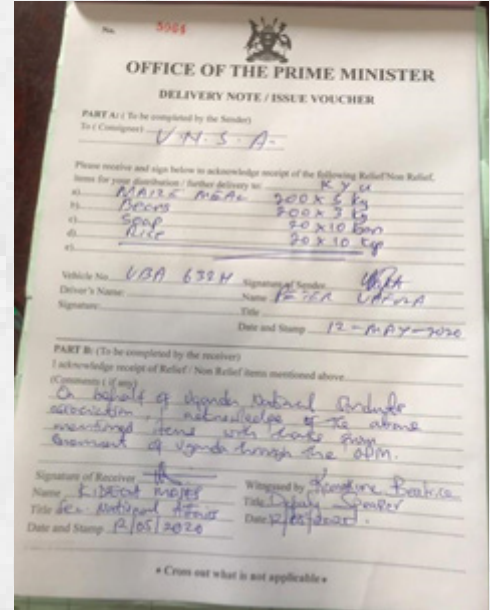 No. 5064
OFFICE OF THE PRIME MINISTER
DELIVERY NOTE / ISSUE VOUCHER
PART A: ( To be completed by the Sender)
To ( Consignee) U.N.S.A.
Please receive and sign below to acknowledge receipt of the following Relief/Non Relief,
items for your distribution / further delivery to: K y u
a) MAIZE MEAL 200 x 5 kg
b) Beans 200 x 3 kg
c) Soap 20 x 10
d) Rice 20 x 10 kg
e)
Vehicle No. UBA 632H Signature of Sender
Driver's Name: Name PETER
Signature: Title
Date and Stamp 12-MAY-2020
PART B: (To be completed by the receiver)
I acknowledge receipt of Relief / Non Relief items mentioned above
(Comments ( if any)
On behalf of Uganda National Students
association, I acknowledge of the above
mentioned items with thanks from
Government of Uganda through the OPM.
Signature of Receiver Witnessed by Beatrice
Name Title Deputy Speaker
Title Sec. National Date 12/05/2020.
Date and Stamp 12/05/2020
• Cross out what is not applicable •